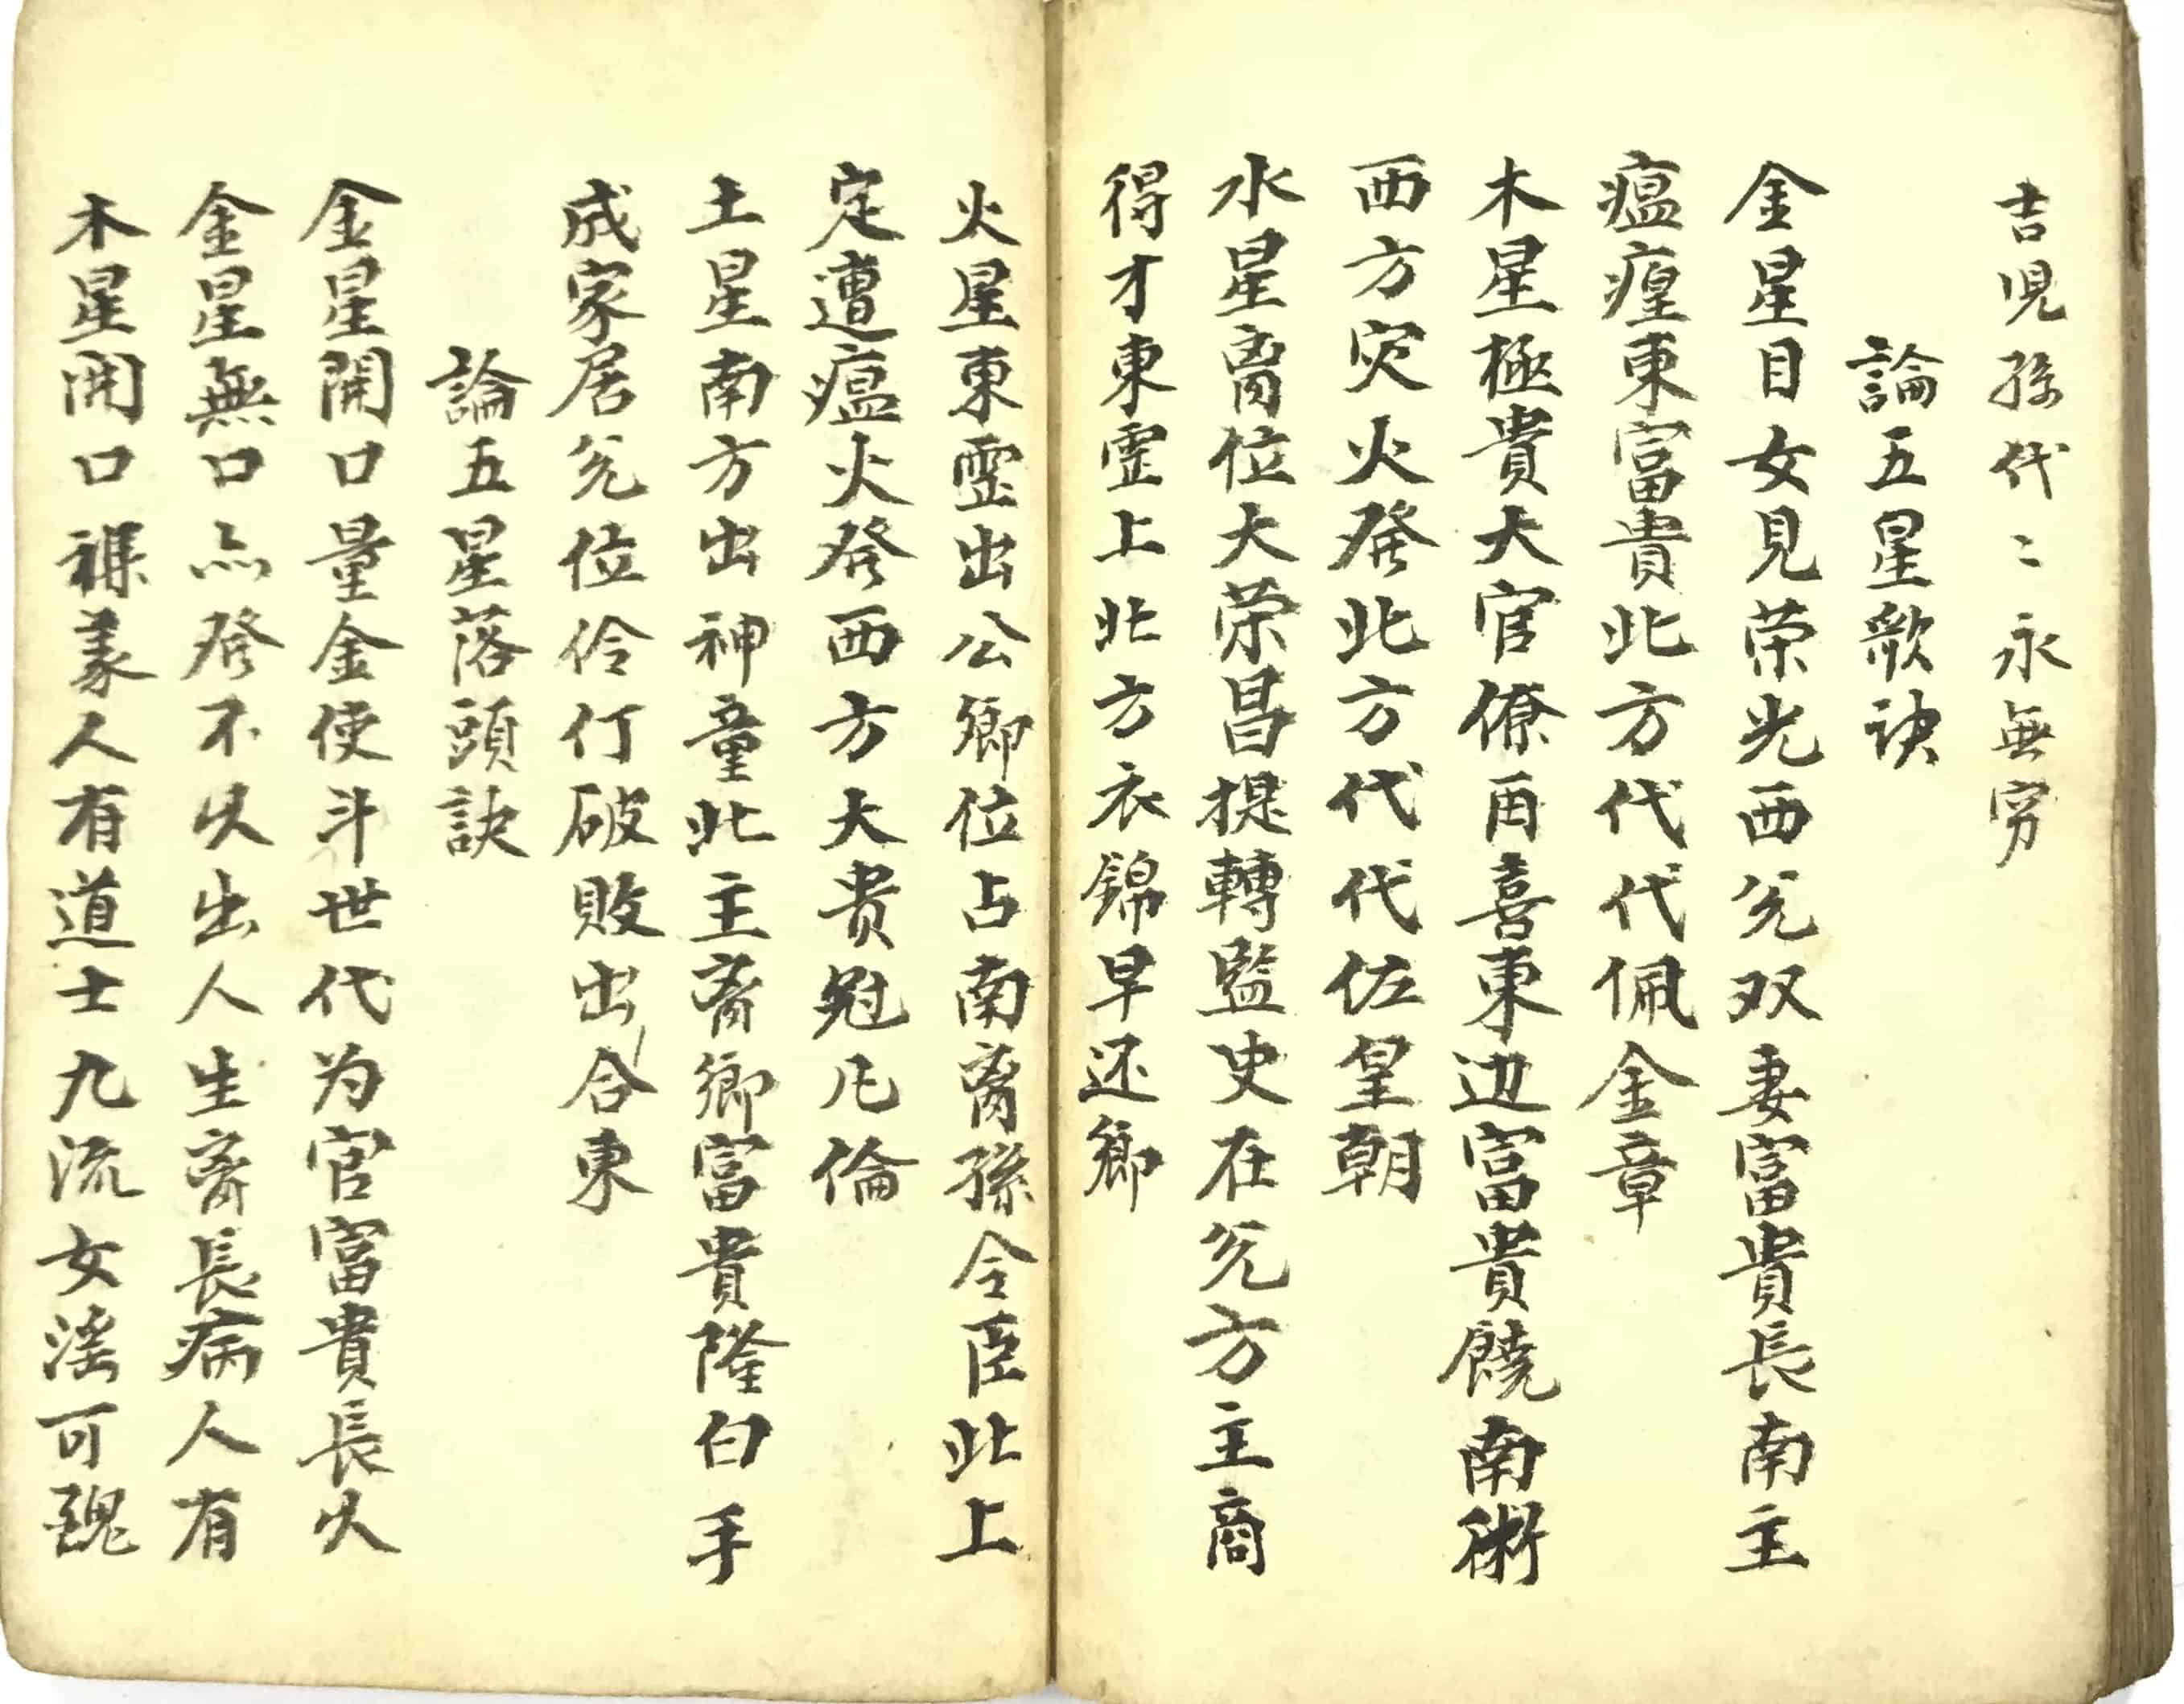 吉児孫代〻永無穷
論五星歌訣
金星目女見荣光西兊双妻富貴長南主
瘟瘽東富貴北方代代佩金章
木星極貴大官僚酉喜東边富貴饒南術
西方灾火發北方代代佐皇朝
水星离位大荣昌提轉監史在兊方主商
得才東霊上北方衣錦早还鄉
火星東霊出公卿位占南离孫令臣北上
定遭瘟火發西方大贵冠凡倫
土星南方出神童北主裔卿富貴隆白手
成家居兊位伶仃破敗出合東
論五星落頭訣
金星開口量金使斗世代为官富貴長久
金星無口亦發不久出人生齊長病人有
木星開口人有道士九流女淫可醜